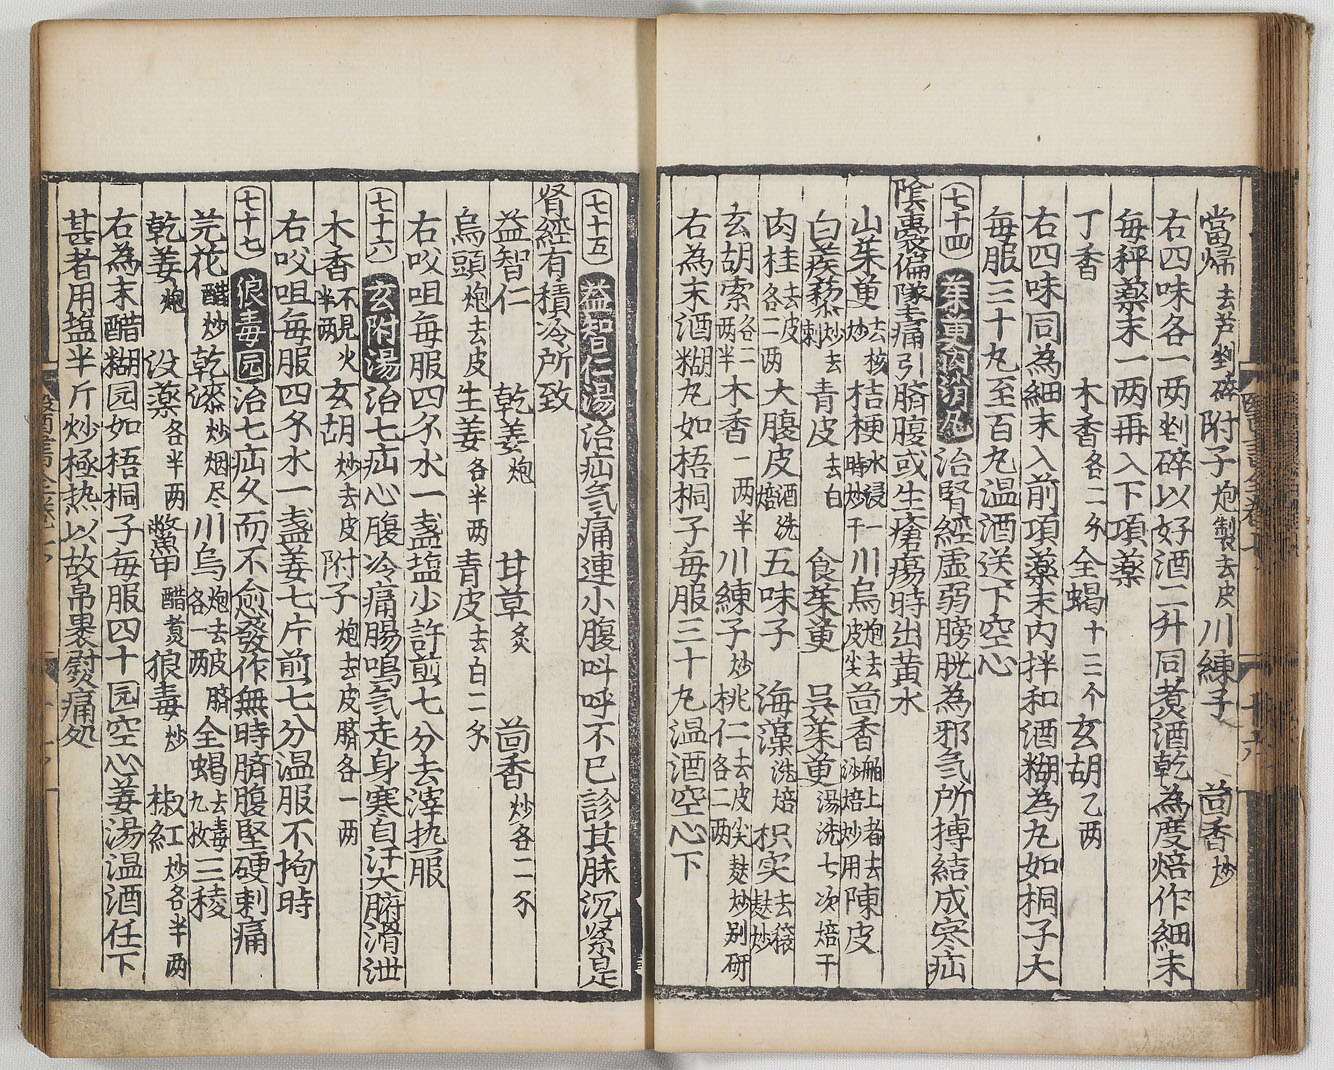 當歸去芦剉碎 附子炮製去皮 川練子 茴香炒
右四味各一两剉碎以好酒二升同煮酒乾為度焙作細末
每秤藥末一两再入下項藥
丁香 木香各二分 全蝎十二个 玄胡乙两
右四味同為細末入前項藥末内拌和酒糊為丸如桐子大
每服三十丸至百丸温酒送下空心
七十四 茱萸内消丸 治腎經虚弱膀胱為邪气所搏結成寒疝
陰囊偏墜痛引臍腹或生瘡瘍時出黄水
山茱萸去核炒 桔梗水浸一時炒干 川烏炮去皮尖 茴香舶上者去沙焙炒用 陳皮
白蒺藜炒去刺 青皮去白 食茱萸 呉茱萸湯洗七次焙干
肉桂去皮各一两 大腹皮酒洗焙 五味子 海藻洗焙 枳实去穣麸炒
玄胡索各二两半 木香一两半 川練子炒 桃仁去皮尖麸炒别研各二两
右為末酒糊丸如梧桐子每服三十丸温酒空心下
七十五 益智仁湯 治疝气痛連小腹呌呼不已診其脉沉𦂳是
腎經有積冷所致
益智仁 乾姜炮 甘草炙 茴香炒各二分
烏頭炮去皮 生姜各半两 青皮去白二分
右㕮咀每服四分水一盞塩少許煎七分去滓热服
七十六 玄附湯 治七疝心腹冷痛腸鳴气走身寒自汗大腑滑泄
木香不見火半两 玄胡炒去皮 附子炮去皮臍各一两
右㕮咀每服四分水一盞姜七片煎七分温服不拘時
七十七 狼毒园 治七疝久而不愈發作無時臍腹堅硬刺痛
芫花醋炒 乾漆炒烟尽 川烏炮去皮臍各一两 全蝎去毒九枚 三稜
乾姜炮 没藥各半两 鱉甲醋煮 狼毒炒 椒紅炒各半两
右為末醋糊园如梧桐子每服四十园空心姜湯温酒任下
甚者用塩半斤炒極热以故帛裹熨痛处